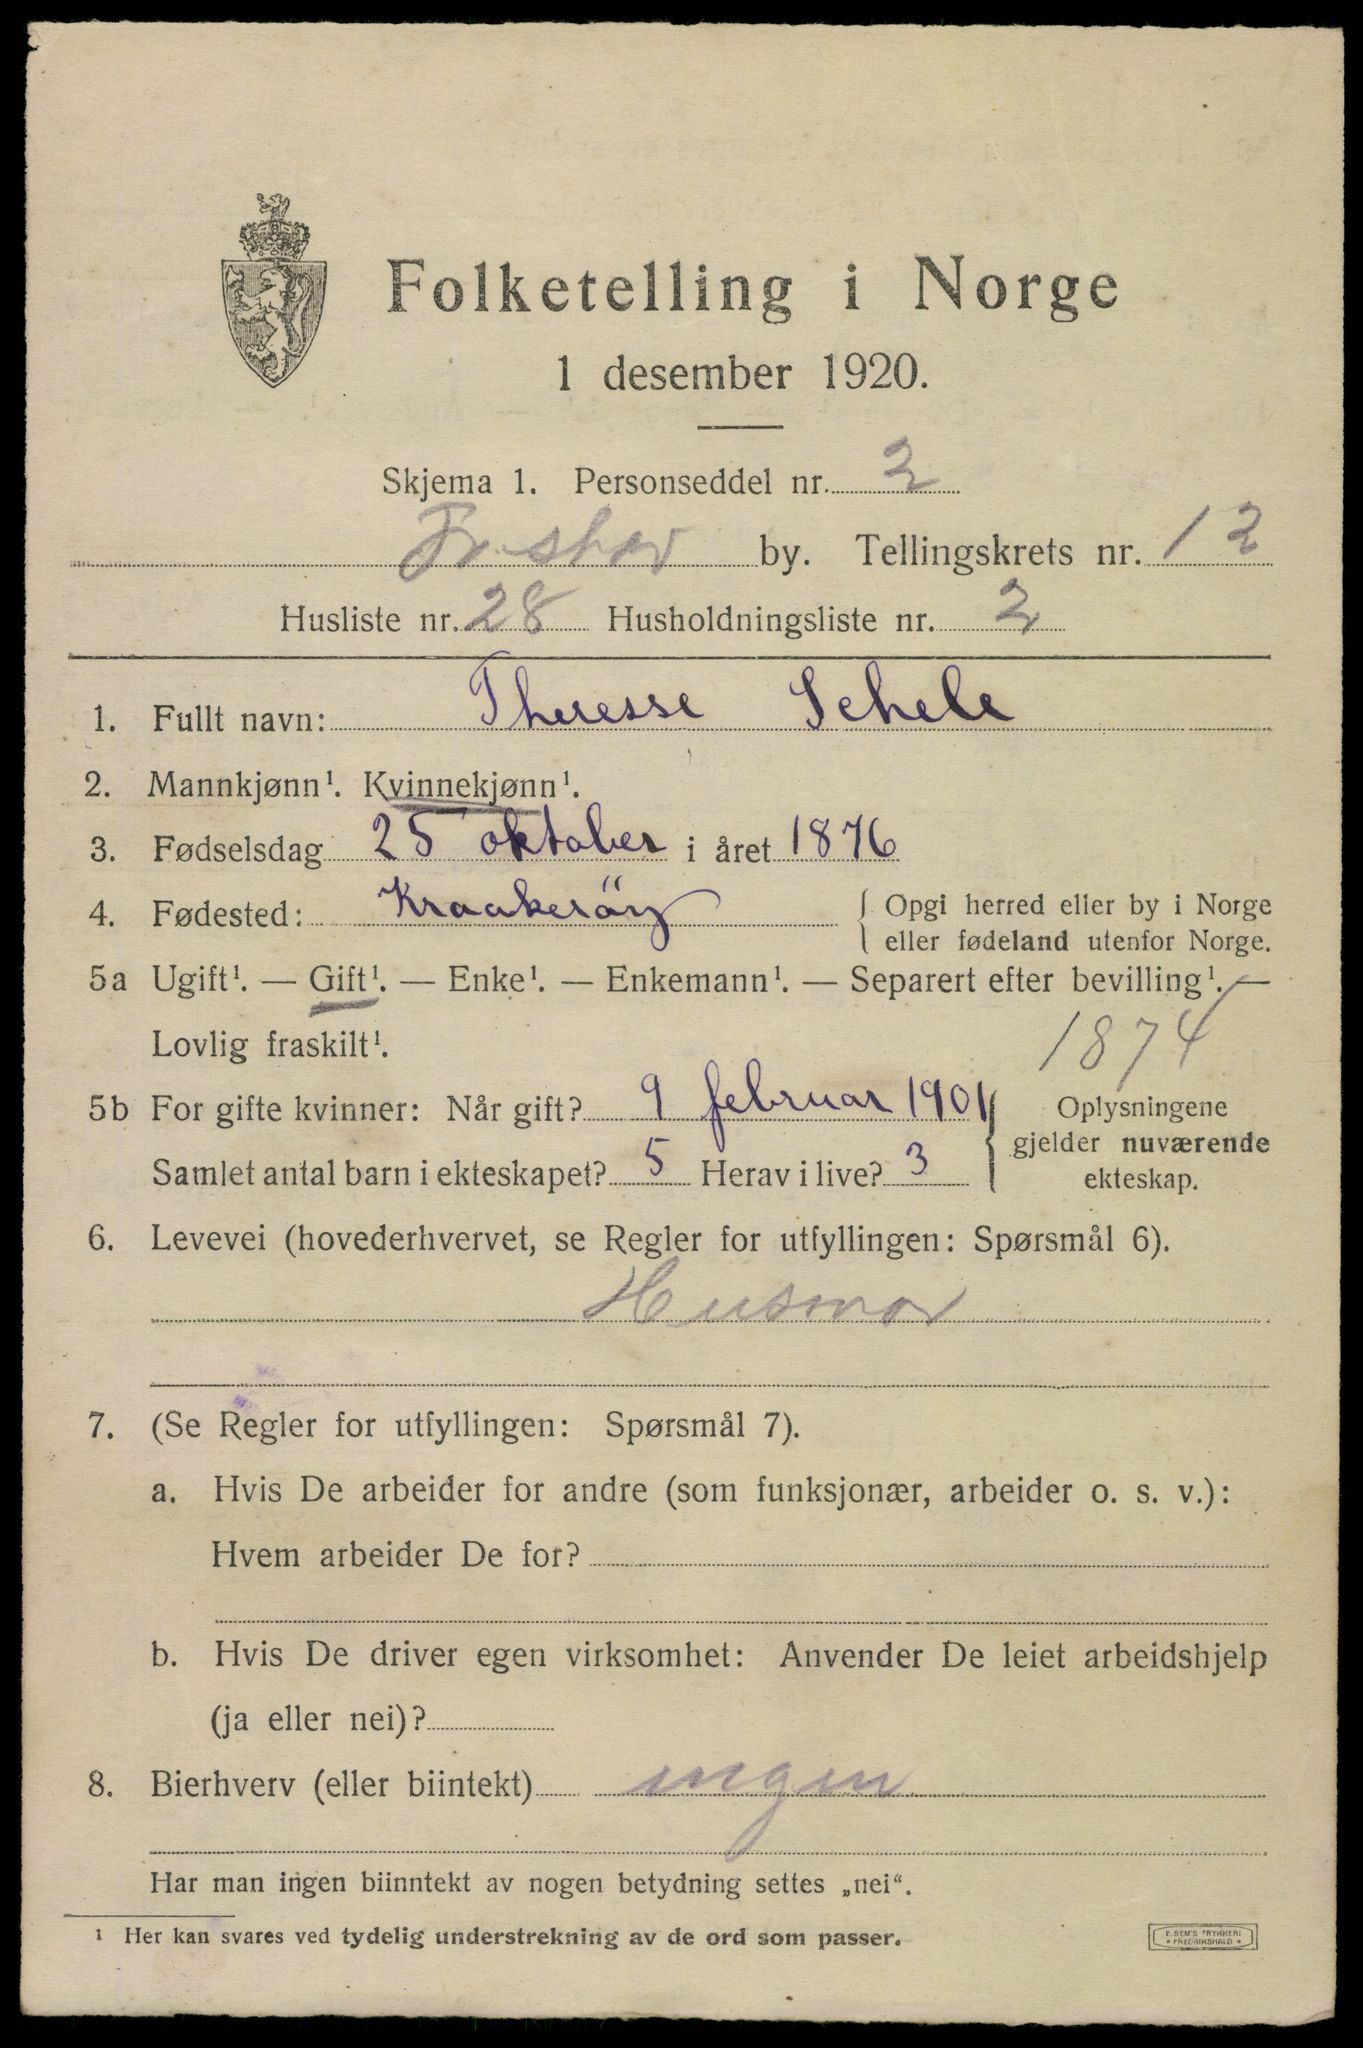 Folketelling i Norge
1 desember 1920.
Skjema 1. Personseddel nr. 2
Fr.stad by. Tellingskrets nr. 12
Husliste nr. 28 Husholdningsliste nr. 2
1. Fullt navn: Theresse Schele
2. Mannkjønn¹. Kvinnekjønn¹.
3. Fødselsdag 25 oktober i året 1876
4. Fødested: Kraakeröy { Opgi herred eller by i Norge
eller fødeland utenfor Norge.
5a Ugift¹. — Gift¹. — Enke¹. — Enkemann¹. — Separert efter bevilling¹. —
Lovlig fraskilt¹. 1874
5b For gifte kvinner: Når gift? 9 februar 1901 { Oplysningene
gjelder nuværende
Samlet antal barn i ekteskapet? 5 Herav i live? 3 ekteskap.
6. Levevei (hovederhvervet, se Regler for utfyllingen: Spørsmål 6).
Husmor
7. (Se Regler for utfyllingen: Spørsmål 7).
a. Hvis De arbeider for andre (som funksjonær, arbeider o. s. v.):
Hvem arbeider De for?
b. Hvis De driver egen virksomhet: Anvender De leiet arbeidshjelp
(ja eller nei)?
8. Bierhverv (eller biintekt) ingen
Har man ingen biinntekt av nogen betydning settes „nei“.
¹ Her kan svares ved tydelig understrekning av de ord som passer.
E. SEM'S TRYKKERI
• FREDRIKSHALD •